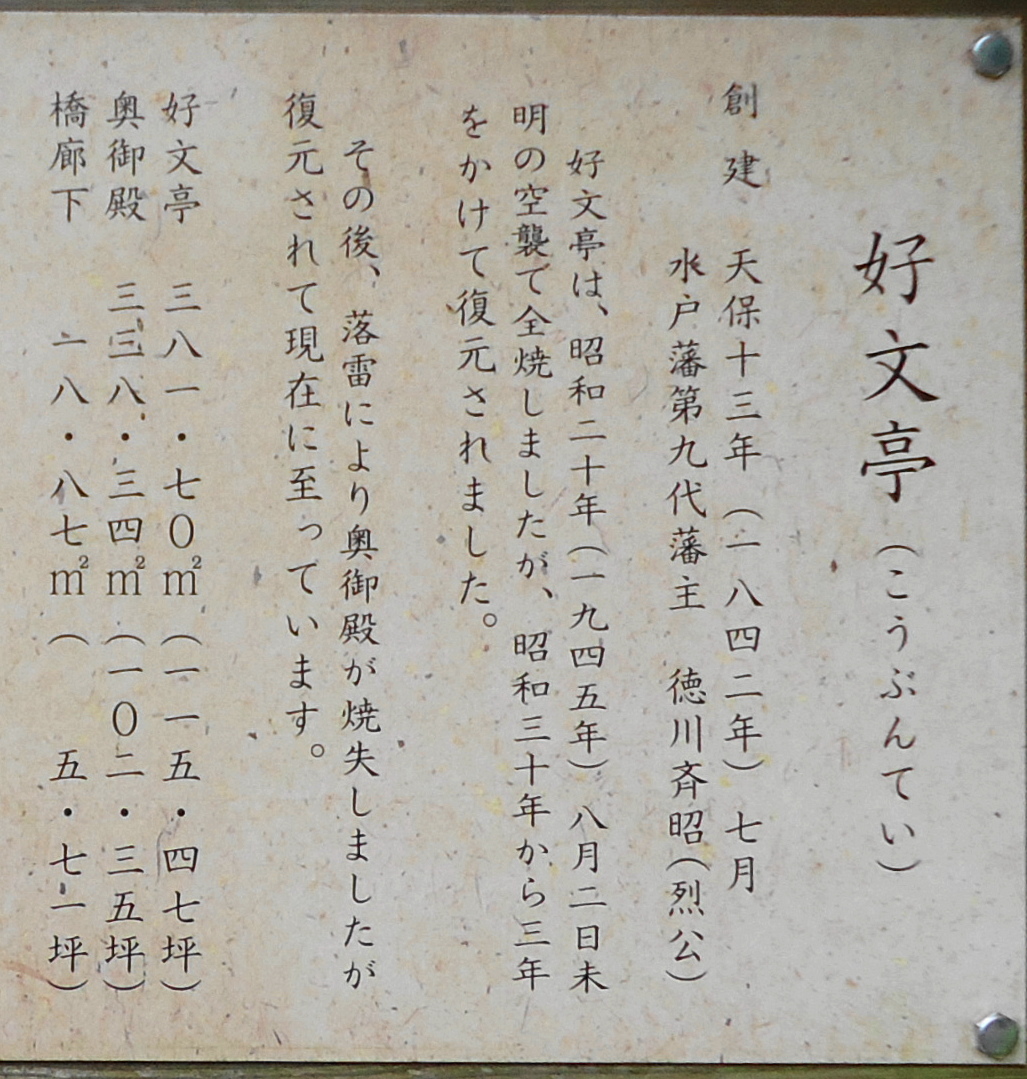 好文亭(こうぶんてい)
創建 天保十三年(一八四二年)七月
水戸藩第九代藩主 徳川斉昭(烈公)
好文亭は、昭和二十年(一九四五年)八月二日未
明の空襲で全焼しましたが、昭和三十年から三年
をかけて復元されました。
その後、落雷により奥御殿が焼失しましたが
復元されて現在に至っています。
好文亭 三八一・七〇㎡(一一五・四七坪)
奥御殿 三三八・三四㎡(一〇二・三五坪)
橋廊下 一八・八七㎡( 五・七一坪)